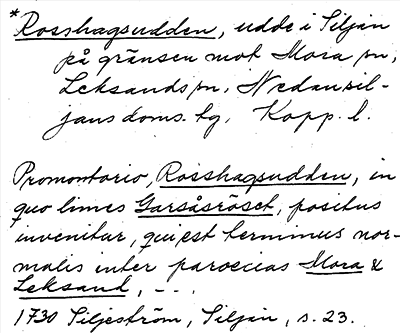 *Rosshagsudden, udde i Siljan
på gränsen mot Mora sn,
Leksands sn, Nedansil-
jans doms. tg, Kopp. l.
Promontorio, Rosshagsudden, in
quo limes Garsåsröset, positus
invenitur, qui est terminus nor-
malis inter paroecias Mora &
Leksand, - - .
1730 Siljeström, Siljan, s. 23.